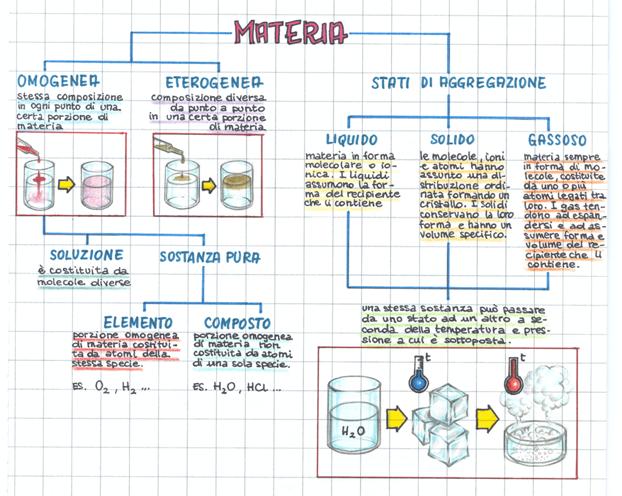 MATERIA
OMOGENEA
stessa composizione
in ogni punto di una
certa porzione di
materia
ETEROGENEA
composizione diversa
da punto a punto
in una certa porzione
di materia
STATI DI AGGREGAZIONE
LIQUIDO
materia in forma
molecolare o io-
nica. I liquidi
assumono la for-
ma del recipiente
che li contiene
SOLIDO
le molecole, ioni
e atomi hanno
assunto una di-
stribuzione ordi-
nata formando un
cristallo. I solidi
conservano la loro
forma e hanno un
volume specifico.
GASSOSO
materia sempre
in forma di mo-
lecole, costituite
da uno o più
atomi legati tra
loro. I gas ten-
dono ad espan-
dersi e ad as-
sumere forma e
volume del re-
cipiente che li
contiene.
SOLUZIONE
è costituita da
molecole diverse
SOSTANZA PURA
ELEMENTO
porzione omogenea
di materia costitui-
ta da atomi della
stessa specie.
ES. O2, H2 ...
COMPOSTO
porzione omogenea
di materia non
costituita da atomi
di una sola specie.
ES. H2O, HCl ...
una stessa sostanza può passare
da uno stato ad un altro a se-
conda della temperatura e pres-
sione a cui è sottoposta.
t
t
H2O